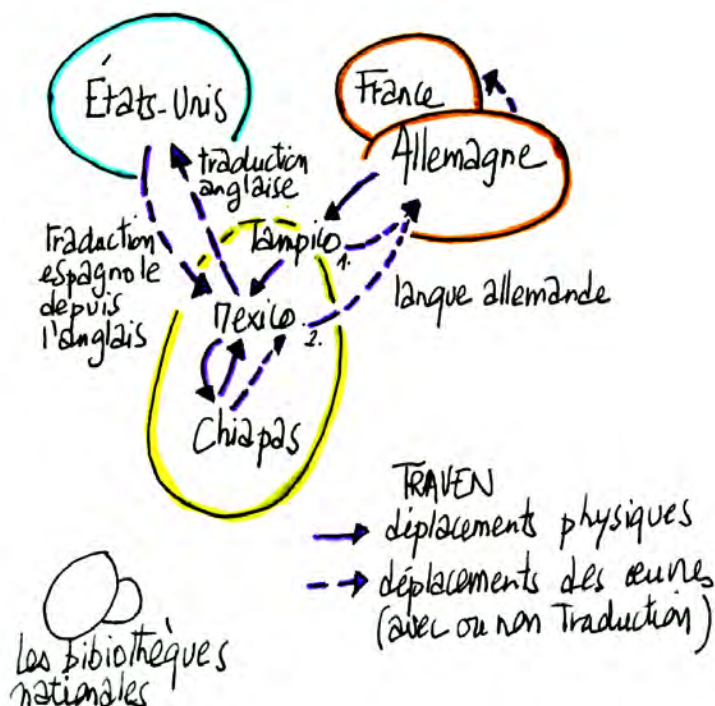 États-Unis
France
Allemagne
traduction
anglaise
Tampico
1.
traduction
espagnole
depuis
l'anglais
Mexico
2.
langue allemande
Chiapas
TRAVEN
déplacements physiques
déplacements des œuvres
(avec ou non traduction)
Les bibiothèques
nationales